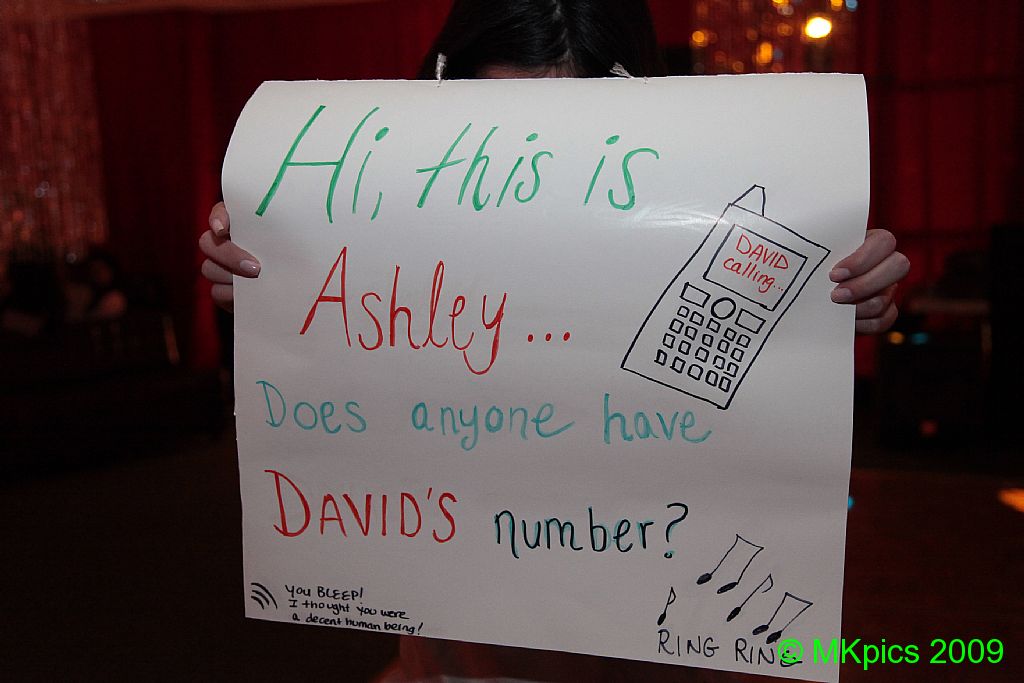 Hi, this is
Ashley...
DAVID
calling...
Does anyone have
DAVID'S number?
YOU BLEEP!
I thought you were
a decent human being!
RING RING
© MKpics 2009